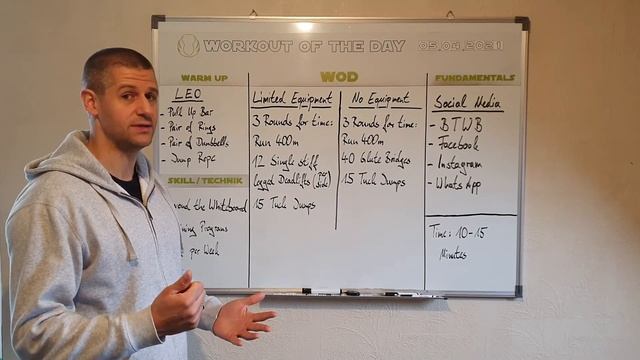 WORKOUT OF THE DAY 05.04.2021
WARM UP
LEO
- Pull Up Bar
- Pair of Rings
- Pair of Dumbbells
- Dump Rope
SKILL/TECHNIK
the Whiteboard
Programs
per Week
WOD
Limited Equipment
3 Rounds for time:
Run 400m
12 Single stiff
legged Deadlifts
15 Tuck Dumps
No Equipment
3 Rounds for time:
Run 400m
40 Glute Bridges
15 Tuck Dumps
FUNDAMENTALS
Social Media
- BTWB
- Facebook
- Instagram
- WhatsApp
Time: 10-15
Minutes